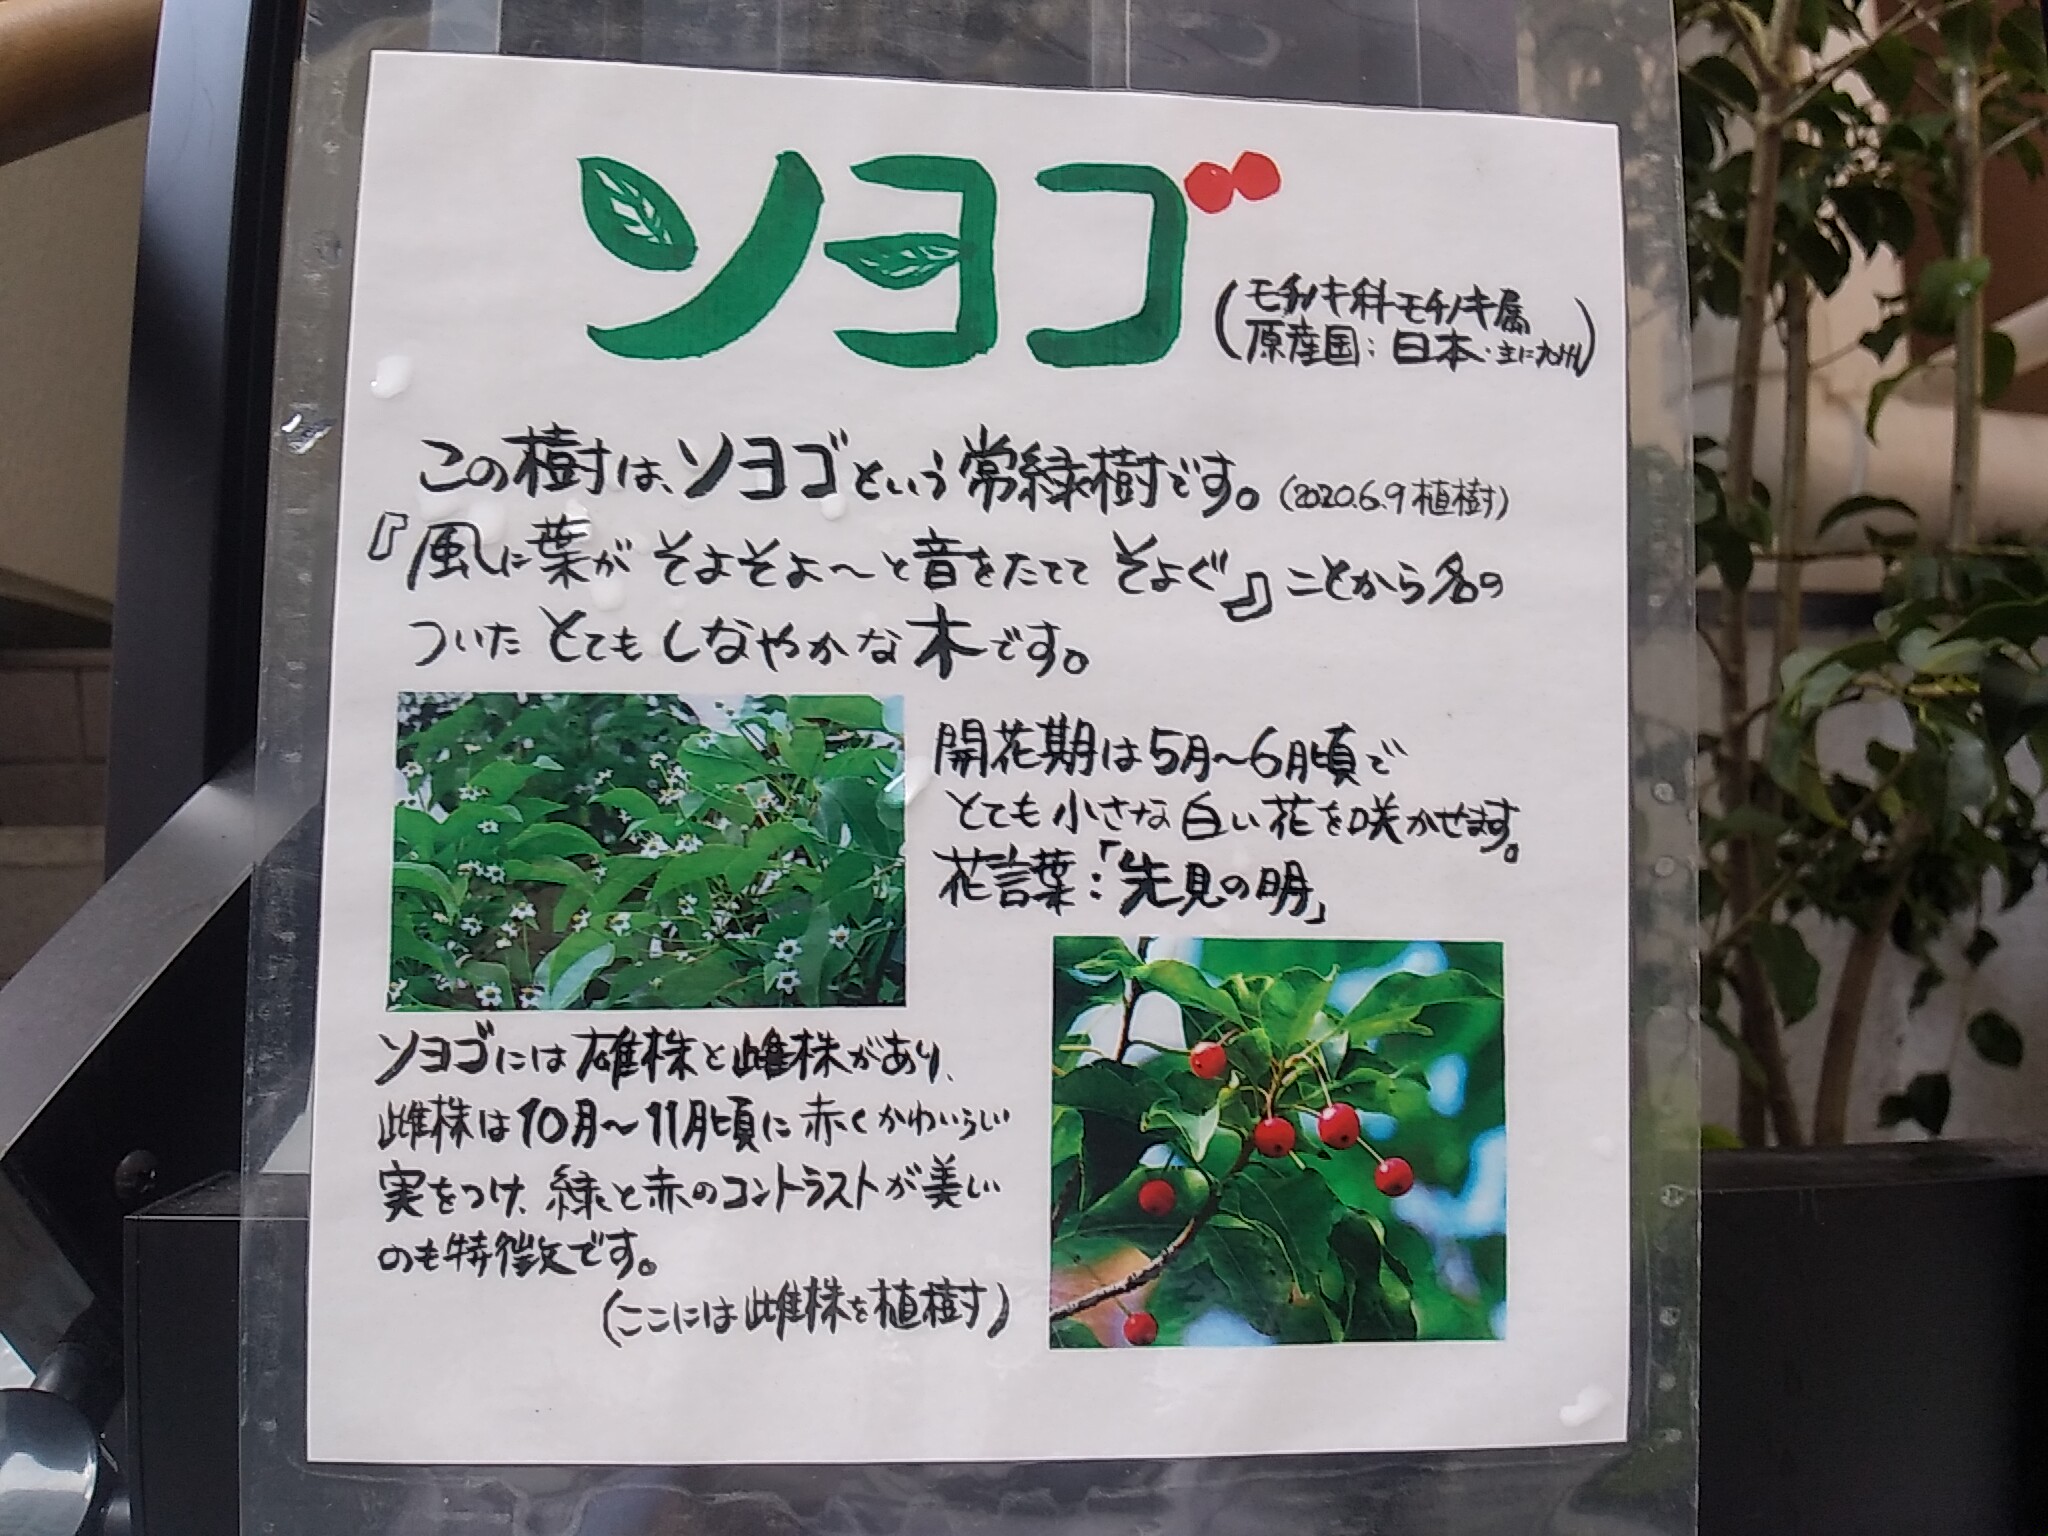 ソヨゴ
(モチノキ科モチノキ属
原産国:日本・主に九州)
この樹は、ソヨゴという常緑樹です。(2020.6.9植樹)
『風に葉がそよそよ〜と音をたててそよぐ』ことから名の
ついたとてもしなやかな木です。
開花期は5月〜6月頃で
とても小さな白い花を咲かせます。
花言葉:「先見の明」
ソヨゴには雄株と雌株があり、
雌株は10月〜11月頃に赤くかわいらしい
実をつけ、緑と赤のコントラストが美しい
のも特徴です。
(ここには雌株を植樹)